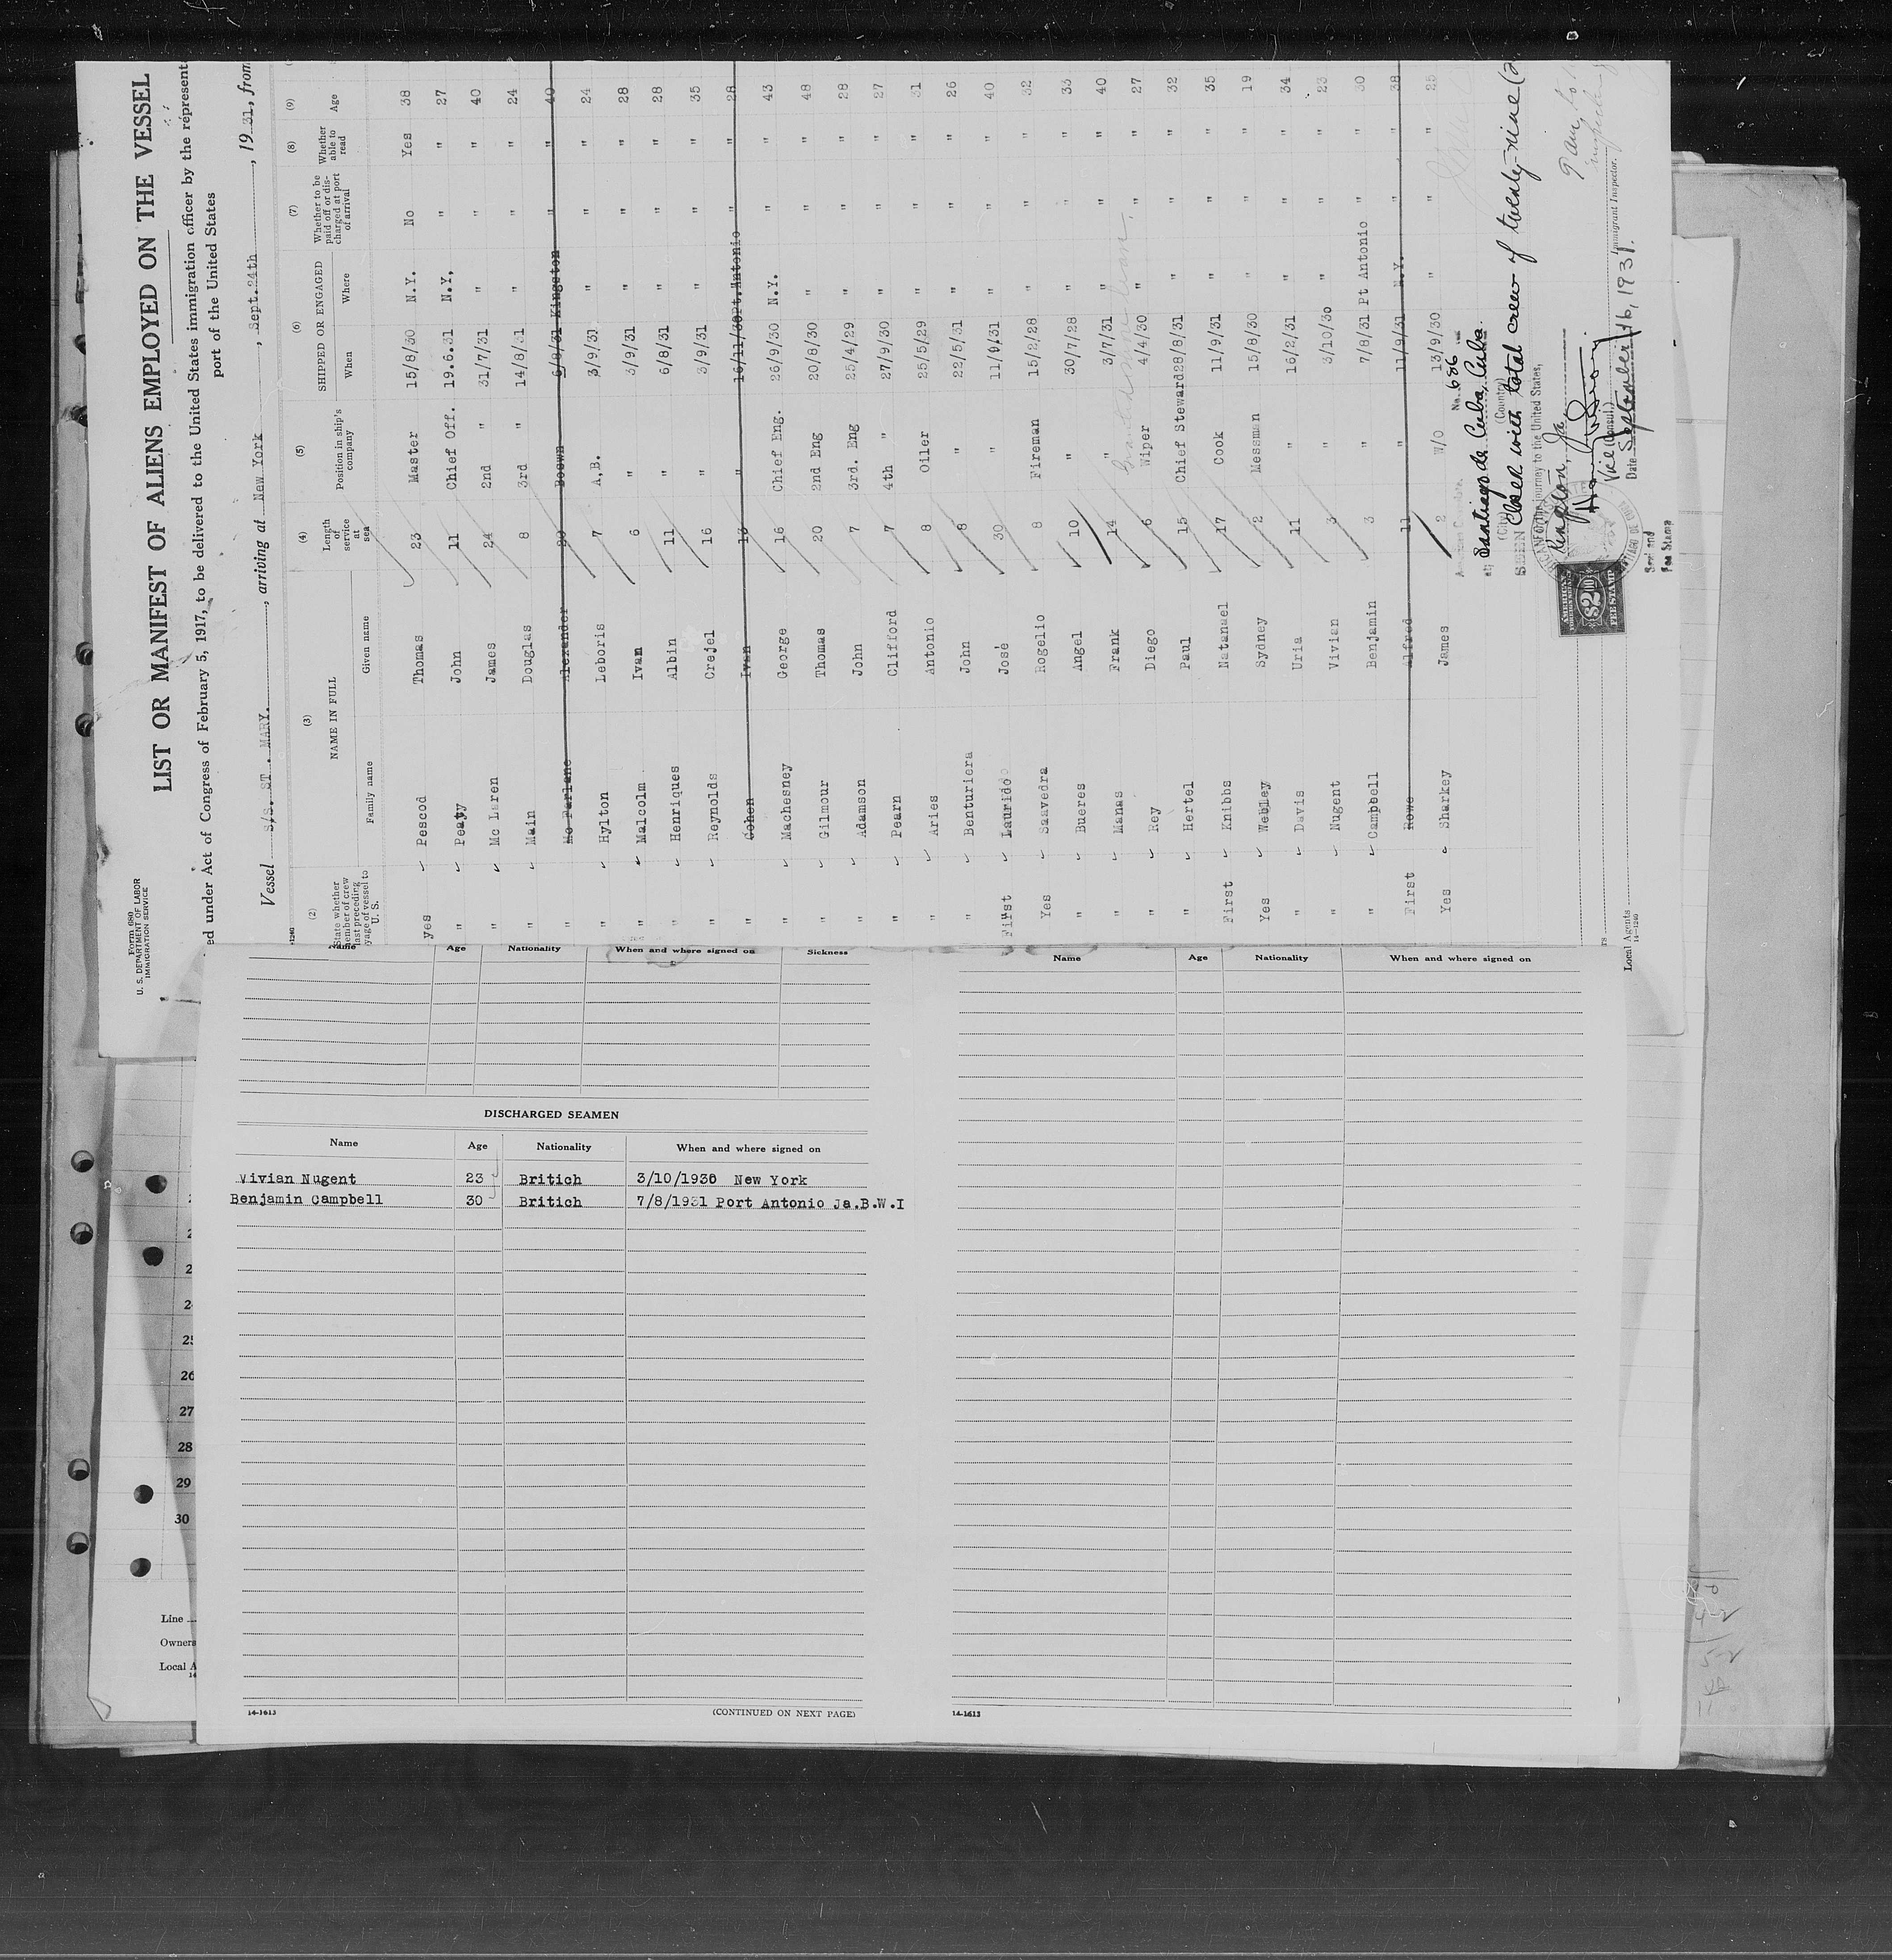 Form 680
U. S. DEPARTMENT OF LABOR
IMMIGRATION SERVICE
LIST OR MANIFEST OF ALIENS EMPLOYED ON THE VESSEL
ed under Act of Congress of February 5, 1917, to be delivered to the United States immigration officer by the represent
port of the United States
Vessel S/S. ST. MARY. , arriving at New York , Sept. 24th , 19 31, from
(2) (3) (4) (5) (6) (7) (8) (9)
State whether member of crew last preceding voyage of vessel to U. S. NAME IN FULL Family name Given name Length of service at sea Position in ship's company SHIPPED OR ENGAGED When Where Whether to be paid off or discharged at port of arrival Whether able to read Age
yes Pescod Thomas 23 Master 15/8/30 N.Y. No Yes 38
" Peaty John 11 Chief Off. 19.6.31 N.Y. " " 27
" Mc Laren James 24 2nd " 31/7/31 " " " 40
" Main Douglas 8 3rd " 14/8/31 " " " 24
" Mc Farlane Alexander 20 Boswn 6/8/31 Kingston " " 40
" Hylton Leboris 7 A.B. 3/9/31 " " " 24
" Malcolm Ivan 6 " 3/9/31 " " " 28
" Henriques Albin 11 " 6/8/31 " " " 28
" Reynolds Crejel 16 " 3/9/31 " " " 35
" Cohen Ivan 13 " 16/11/30 Pt. Antonio " " 28
" Machesney George 16 Chief Eng. 26/9/30 N.Y. " " 43
" Gilmour Thomas 20 2nd Eng 20/8/30 " " " 48
" Adamson John 7 3rd. Eng 25/4/29 " " " 28
" Pearn Clifford 7 4th " 27/9/30 " " " 27
" Aries Antonio 8 Oiler 25/5/29 " " " 31
" Benturiera John 8 " 22/5/31 " " " 26
First Laurido José 30 " 11/9/31 " " " 40
Yes Saavedra Rogelio 8 Fireman 15/2/28 " " " 32
" Bueres Angel 10 " 30/7/28 " " " 33
" Manas Frank 14 " 3/7/31 " " " 40
" Rey Diego 6 Wiper 4/4/30 " " " 27
" Hertel Paul 15 Chief Steward 28/8/31 " " " 32
First Knibbs Natanael 17 Cook 11/9/31 " " " 35
Yes Webley Sydney 2 Messman 15/8/30 " " " 19
" Davis Uria 11 " 16/2/31 " " " 34
" Nugent Vivian 3 " 3/10/30 " " " 23
" Campbell Benjamin 3 " 7/8/31 Pt Antonio " " 30
First Rowe Alfred 11 " 11/9/31 N.Y. " " 38
Yes Sharkey James 2 W/O 13/9/30 " " " 25
No. 686
at Santiago de Cuba, Cuba.
(City) (Country)
SEEN Closed with total crew of twenty-nine
for the journey to the United States,
Kingston, Ja
Vice Consul.
Date September 16, 1931.
Immigrant Inspector.
AMERICAN FOREIGN SERVICE $2.00 FEE STAMP
Seal and
Fee Stamp
Local Agents
14-1240
Name Age Nationality When and where signed on Sickness
DISCHARGED SEAMEN
Name Age Nationality When and where signed on
Vivian Nugent 23 Britich 3/10/1930 New York
Benjamin Campbell 30 Britich 7/8/1931 Port Antonio Ja.B.W.I
14-1613 (CONTINUED ON NEXT PAGE)
Name Age Nationality When and where signed on
14-1613
25
26
27
28
29
30
Line
Owners
Local A
14